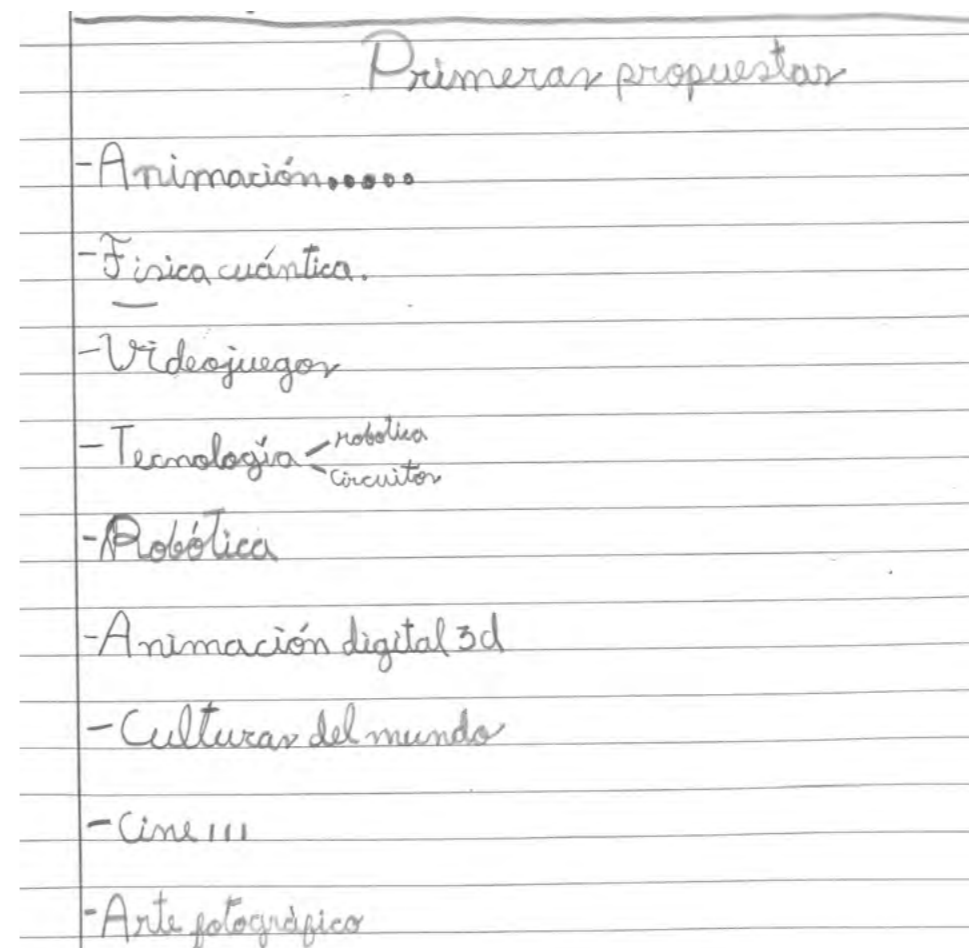 Primeras propuestas
-Animación.....
-Fisica cuántica.
-Videojuegos
-Tecnología robotica
circuitos
-Robótica
-Animación digital 3d
-Culturas del mundo
-Cine ııı
-Arte fotográfico